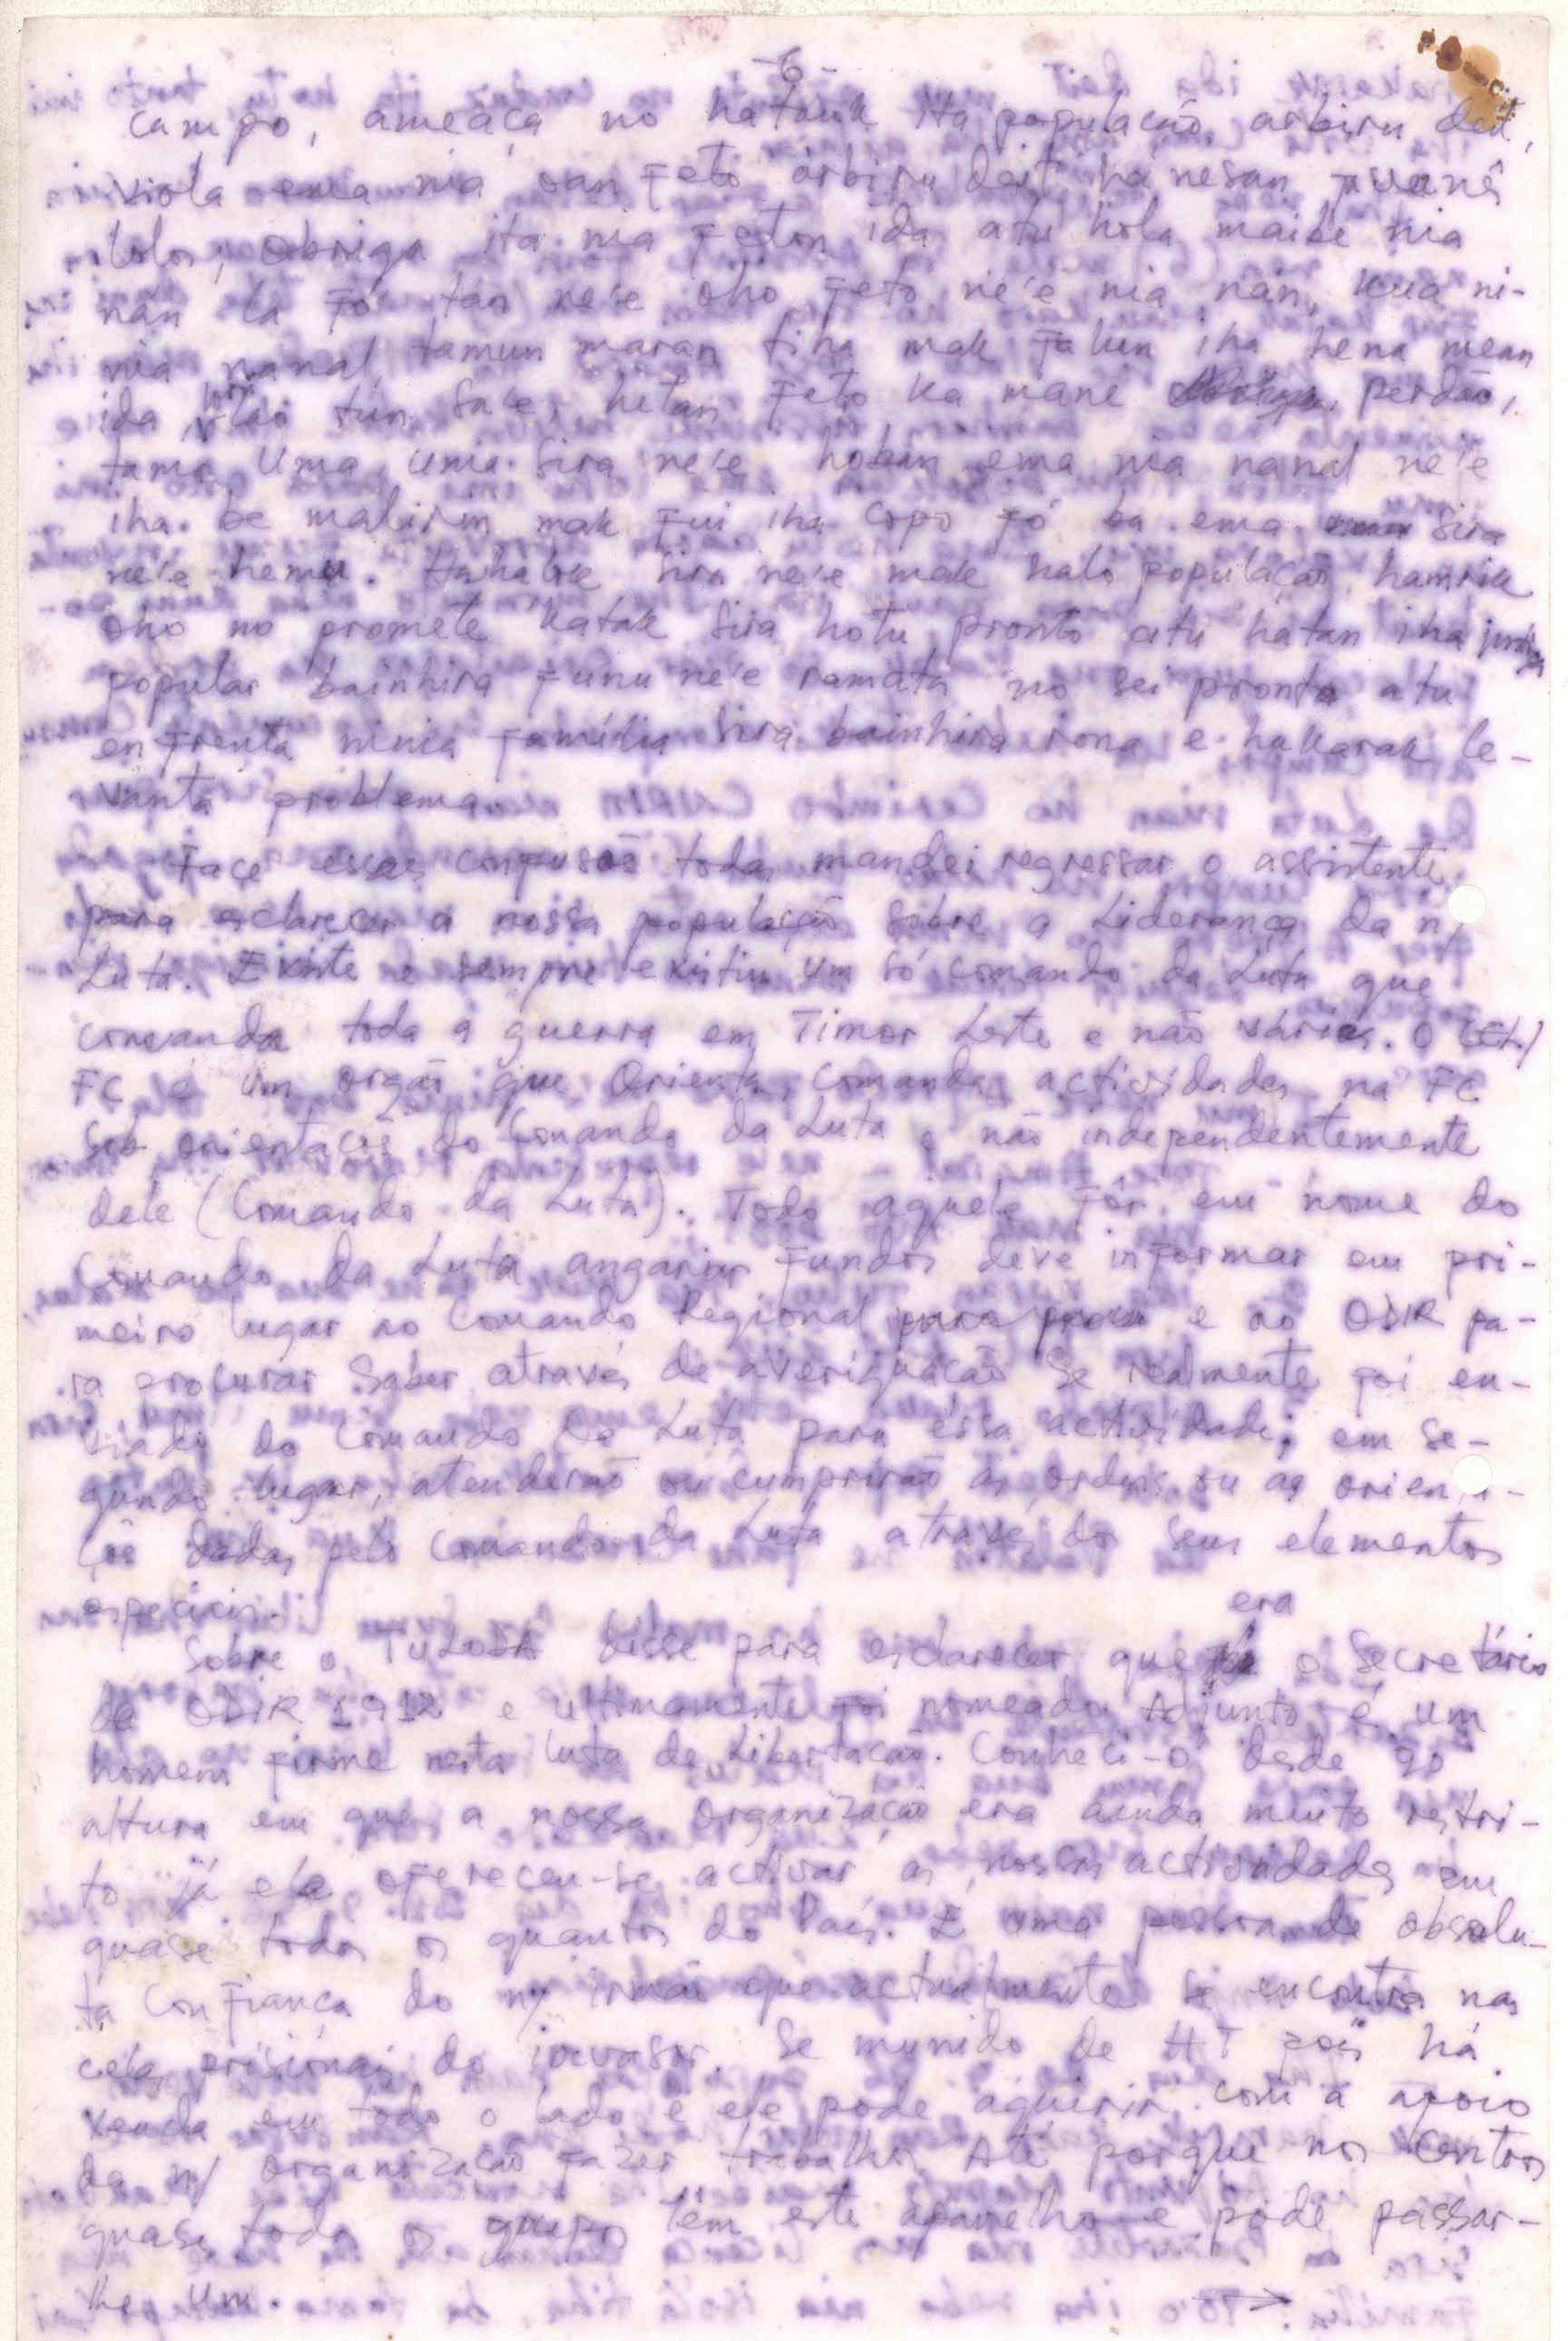 -6-
campo, ameaça no hatauk ita população arbiru deit,
viola ema nia oan feto arbiru deit hanesan javanês
lolos, obriga ita nia feton ida atu hola maibe nia
nan la fó tan ne'e oho feto ne'e nia nan, kua ni-
nia nanal tamun maran tiha mak falun iha hena mean
ida, hodi lao tun sa'e, hetan feto ka mane perdão,
tama uma, uma sira ne'e hoban ema nia nanal ne'e
iha be malirin mak fui iha copo fó ba ema sira
ne'e hemu. Hahalok sira ne'e mak halo população hamrik
oho no promete katak sira hotu pronto atu hatan iha justiça
popular bainhira funu ne'e ramata no sei pronto atu
enfrenta ninia família sira bainhira rona e hakarak le-
vanta problema.
Face essas confusões todas mandei regressar o assistente
para esclarecer a nossa população sobre a Liderança da n/
Luta. Existe e sempre existiu um só comando da Luta que
comanda toda a guerra em Timor Leste e não vários. O CEL/
FC é um orgão que Orienta, comanda actividades na FC
sob orientação do Comando da Luta e não independentemente
dele (Comando da Luta). Todo aquele fôr em nome do
Comando da Luta angariar fundos deve informar em pri-
meiro lugar ao Comando Regional e ao ODIR pa-
ra procurar saber através de averiguação se realmente foi en-
viado do Comando da Luta para essa actividade; em se-
gundo lugar, atenderão ou cumprirão as ordens ou as orienta-
ções dadas pelo Comando da Luta através dos seus elementos
especiais.
Sobre o TULODA disse para esclarecer que era o Secretário
da ODIR 1912 e ultimamente foi nomeado Adjunto é um
homem firme nesta luta de Libertação. Conheci-o desde 90
altura em que a nossa Organização era ainda muito restri-
to já ele ofereceu-se activar as nossas actividades em
quase todos os quantos do País. É uma pessoa de absolu-
ta Confiança do n/ irmão que actualmente se encontra nas
celas prisionais do invasor. Se munido de HT pois há
venda em todo o lado e ele pode aquirir com a apoio
da n/ Organização fazer trabalhos. Até porque nos Centros
quase todos os grupos têm este aparelho e pode passar-
lhe um. →